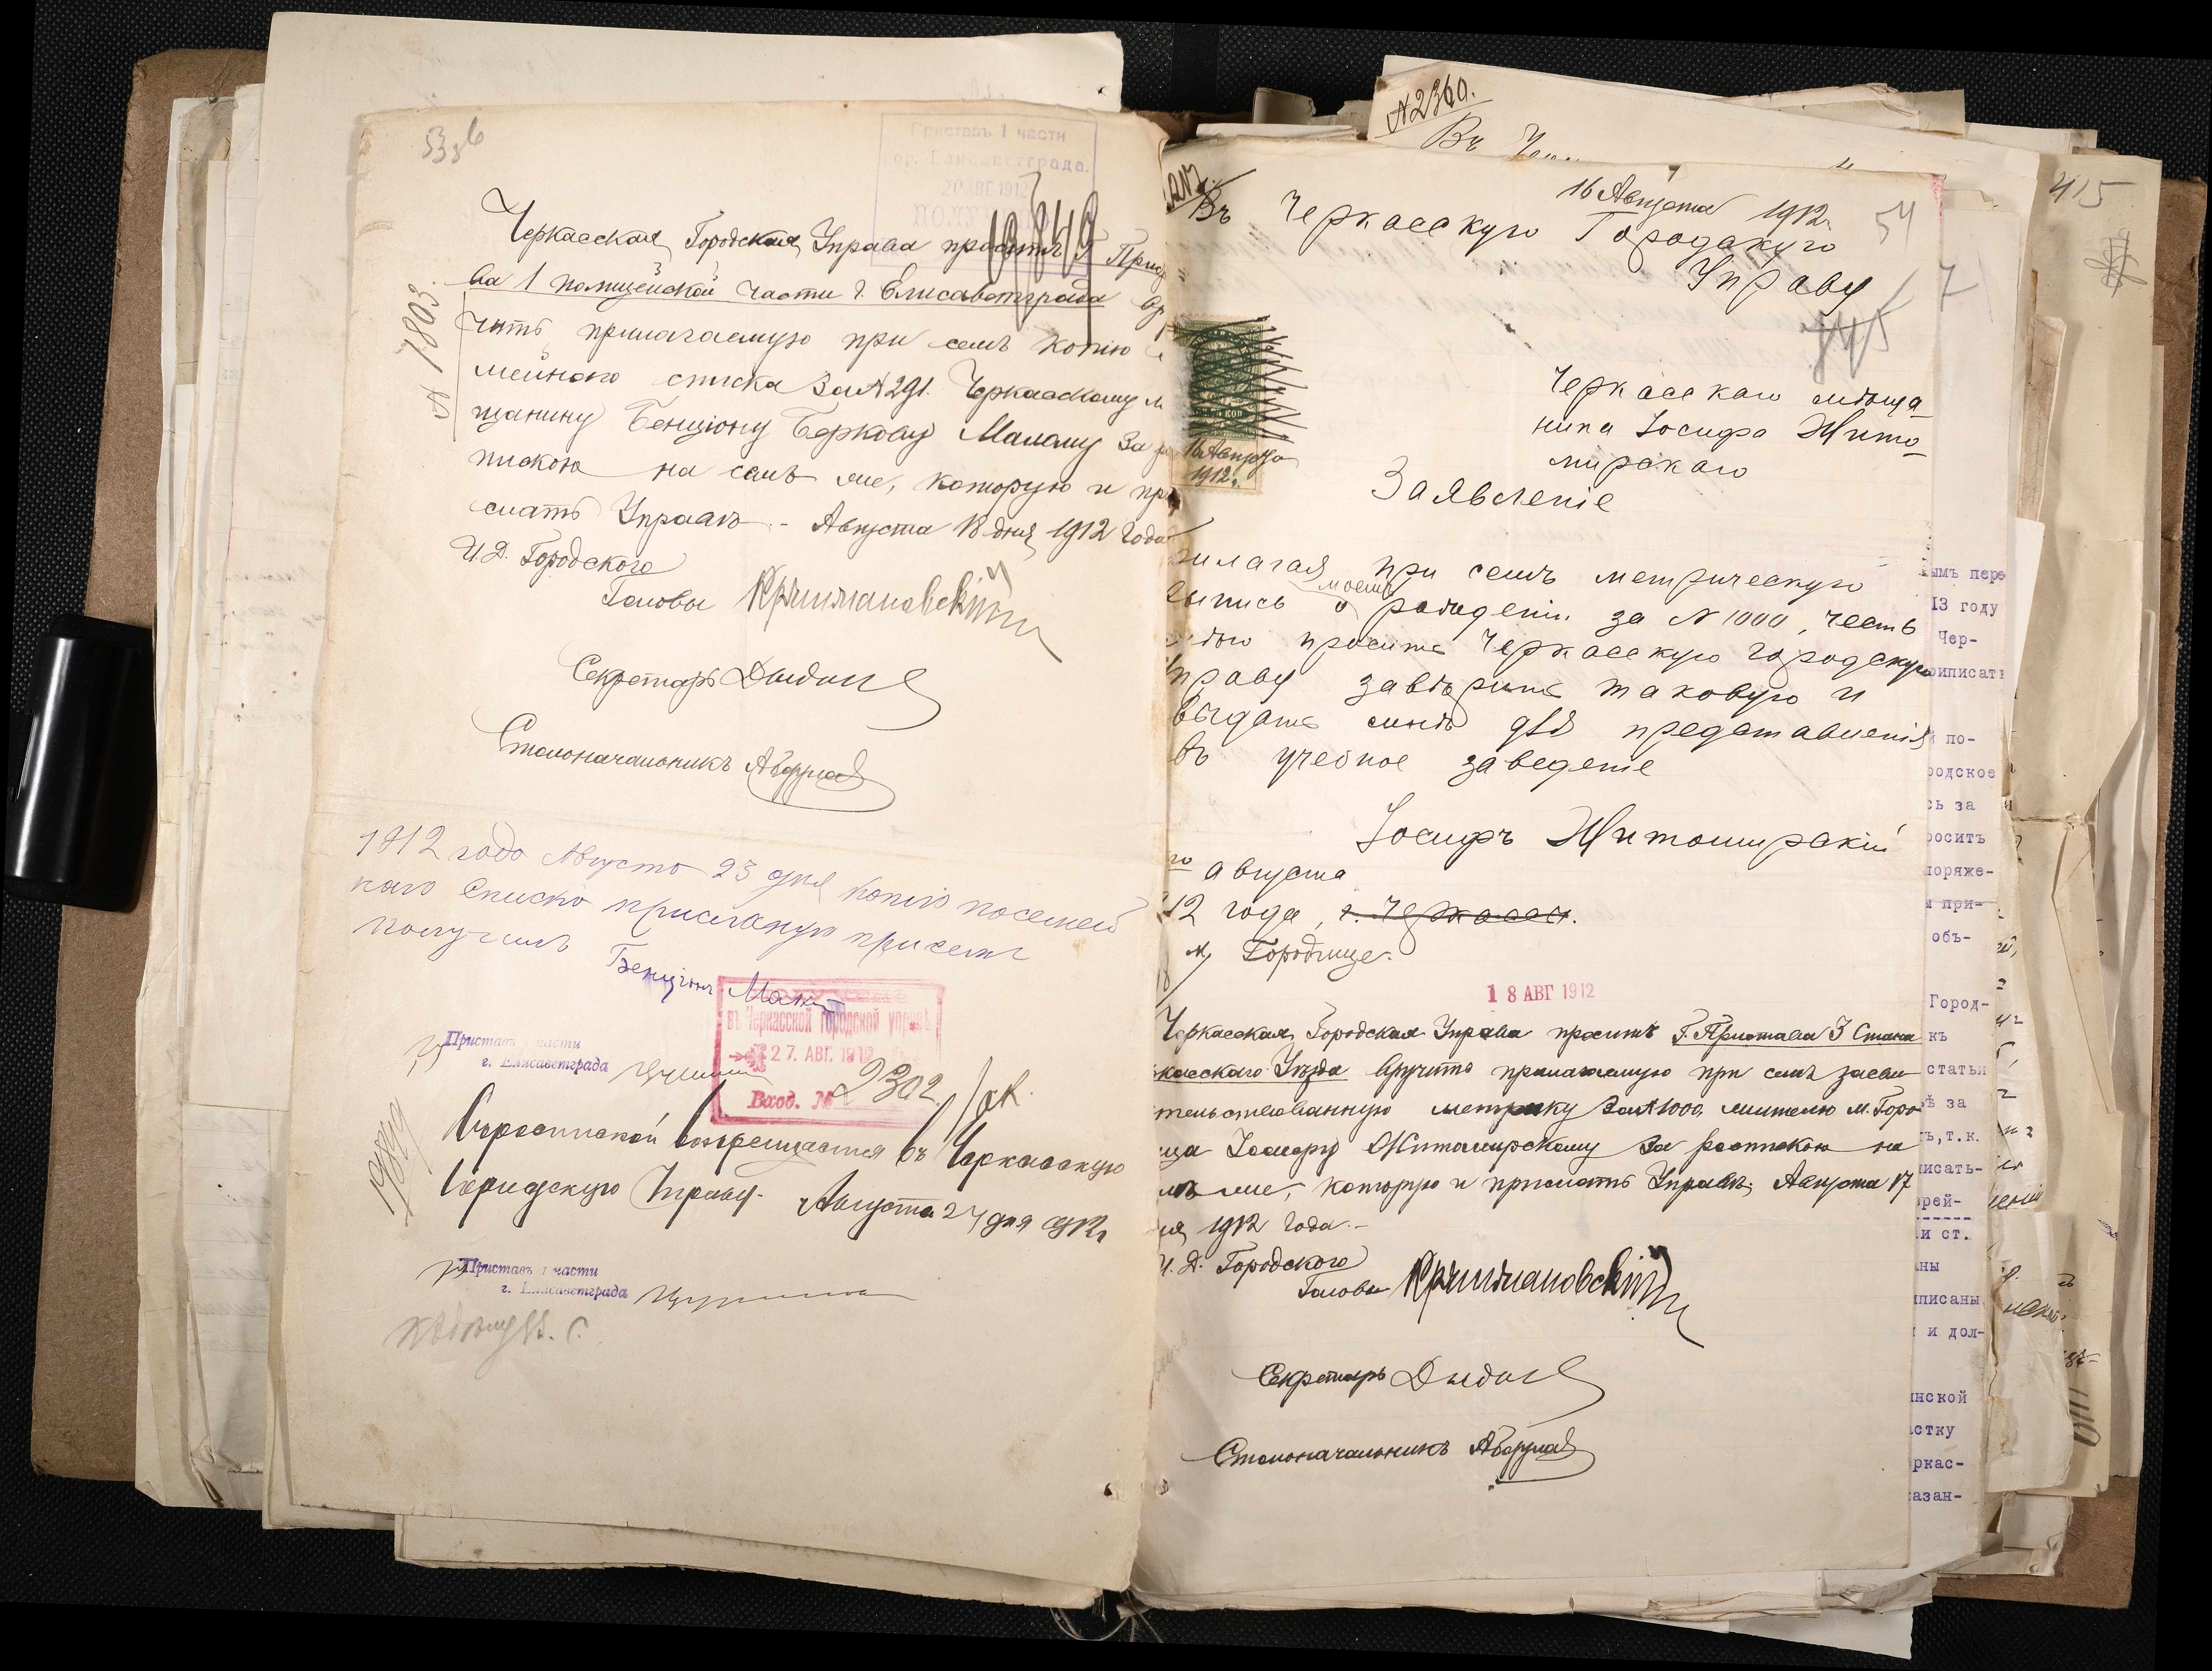 53об
Приставъ 1 части
гор. Елисаветграда.
20 АВГ. 1912
19849
Черкасская Городская Управа проситъ Г. Приста
ва 1 полицейской части г. Елисаветграда вру
чить прилагаемую при семъ копію се
мейнаго списка за № 291. Черкасскому м
щанину Бенціону Беркову Малому за р
пискою на семъ же, которую и при
слать Управѣ. - Августа 18 дня 1912 года
№ 7803.
И. Д. Городского
Головы Крыжановскій
Секретарь
Столоначальникъ
1912 года Августа 23 дня копію посемей
наго списка присланую при семъ
получилъ
Бенціонъ Малый
Приставъ 1 части
г. Елисаветграда
въ Черкасской городской управѣ
27. АВГ. 1912
Вход. № 2302
19849
Съ роспиской возвращается въ Черкасскую
Городскую Управу. Августа 24 дня 1912 г.
Приставъ 1 части
г. Елисаветграда
№ 2360.
Въ
415
16 Августа 1912
54
Въ Черкасскую Городскую
Управу
7
745
Черкасскаго мѣща-
нина Іосифа Жито-
мирскаго
16 Августа
1912 г.
Заявленіе
рилагая при семъ метрическую
выпись о моемъ рожденіи за № 1000, честь
имѣю просить Черкасскую городскую
Управу завѣрить таковую и
выдать мнѣ для представленія
въ учебное заведеніе
Іосифъ Житомирскій
го августа
12 года, г. Черкассы.
м. Городище.
18 АВГ 1912
Черкасская Городская Управа проситъ Г. Пристава 3 Стана
касскаго Уѣзда вручить прилагаемую при семъ засви
тельствованную метрику за № 1000. жителю м. Горо
ща Іосифу Житомирскому за роспискою на
мъ же, которую и прислать Управѣ. Августа 17
ня 1912 года.-
И. Д. Городского
Головы Крыжановскій
Секретарь
Столоначальникъ
ымъ пере
13 году
Чер-
риписать
по-
родское
сь за
росить
поряже-
и при-
объ-
Город-
къ
статьи
ѣ за
ть, т.к.
писать-
рей-
и ст.
аны
иписаны
и дол-
инской
астку
ркас-
азан-